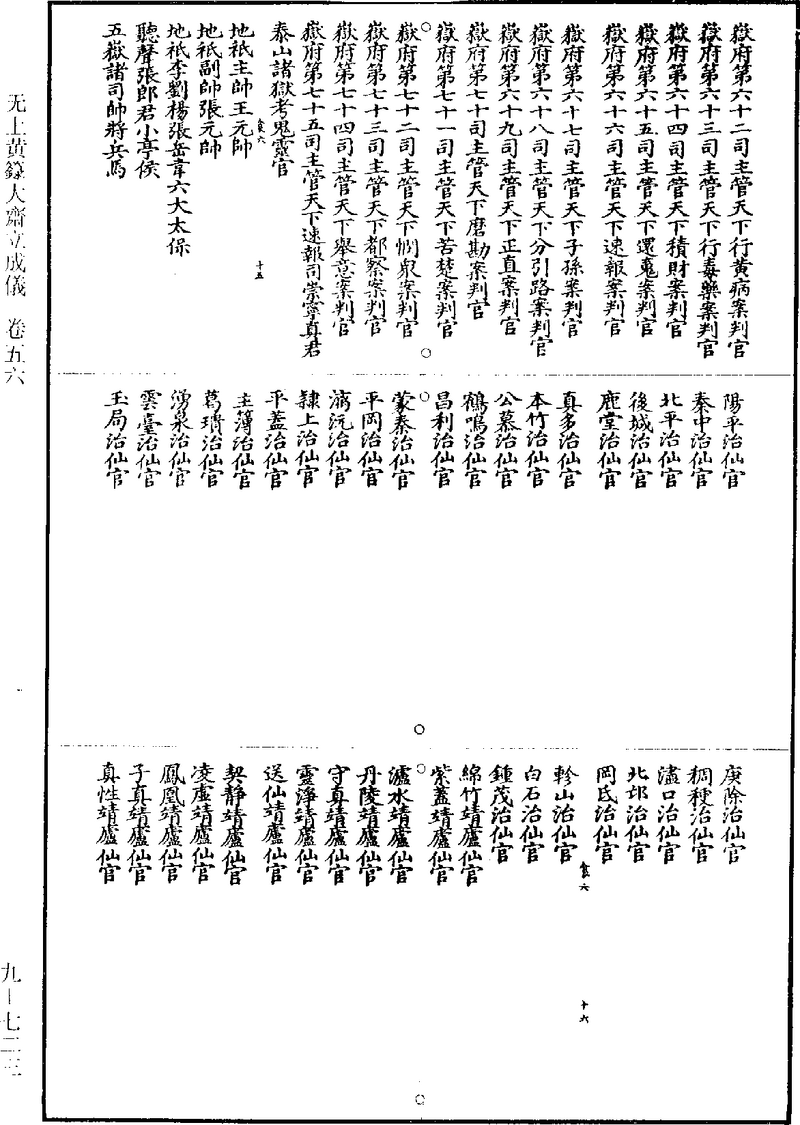 嶽府第六十二司主管天下行黃病案判官
嶽府第六十三司主管天下行毒藥案判官
嶽府第六十四司主管天下積財案判官
嶽府第六十五司主管天下還魂案判官
嶽府第六十六司主管天下速報案判官
嶽府第六十七司主管天下子孫案判官
嶽府第六十八司主管天下分引路案判官
嶽府第六十九司主管天下正直案判官
嶽府第七十司主管天下磨勘案判官
嶽府第七十一司主管天下苦楚案判官
嶽府第七十二司主管天下惘衆案判官
嶽府第七十三司主管天下都察案判官
嶽府第七十四司主管天下舉意案判官
嶽府第七十五司主管天下速報司崇寧真君
泰山諸獄考鬼靈官
食六 十五
地祇主帥王元帥
地祇副帥張元帥
地祇李劉楊張岳韋六大太保
聽聲張郎君小亭侯
五嶽諸司帥將兵馬
陽平治仙官
秦中治仙官
北平治仙官
後城治仙官
鹿堂治仙官
真多治仙官
本竹治仙官
公慕治仙官
鶴鳴治仙官
昌利治仙官
蒙秦治仙官
平岡治仙官
漓沅治仙官
隸上治仙官
平蓋治仙官
主簿治仙官
葛璝治仙官
湧泉治仙官
雲臺治仙官
玉局治仙官
庚除治仙官
稠稉治仙官
濜口治仙官
北邙治仙官
岡氐治仙官
食六 十六
軫山治仙官
白石治仙官
鍾茂治仙官
綿竹靖廬仙官
紫蓋靖廬仙官
瀘水靖廬仙官
丹陵靖廬仙官
守真靖廬仙官
靈淨靖廬仙官
送仙靖廬仙官
契靜靖廬仙官
凌虛靖廬仙官
鳳凰靖廬仙官
子真靖廬仙官
真性靖廬仙官
无上黃籙大齋立成儀 卷五六
九—七二三